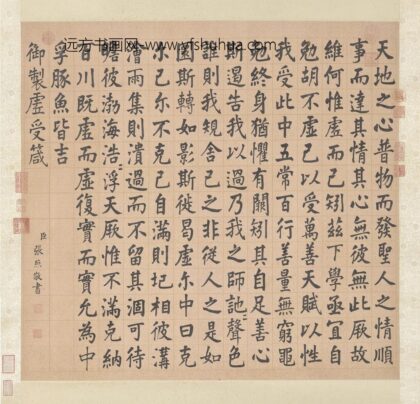 天地之心普物而發聖人之情順
事而達其情其心無彼無此厥故
維何惟虛而已矧茲下學亟宜自
勉胡不虛己以受萬善天賦以性
我受此中五常百行善量無窮黽
勉終身猶懼有闕矧其自足善心
斯遏告我以過乃我之師訑聲色
誰則我規舍己之非從人之是如
圜斯轉如影斯徙曷虛尔中曰克
尔己尔不克己自滿則圮相彼溝
澮雨集則潰過而不留其涸可待
瞻彼渤海浩浮天厥惟不滿克納
百川既虛而虛復實而實允為中
孚豚魚皆吉
御製虛受箴
臣張照敬書
远方书画网 www.yfshuhua.com